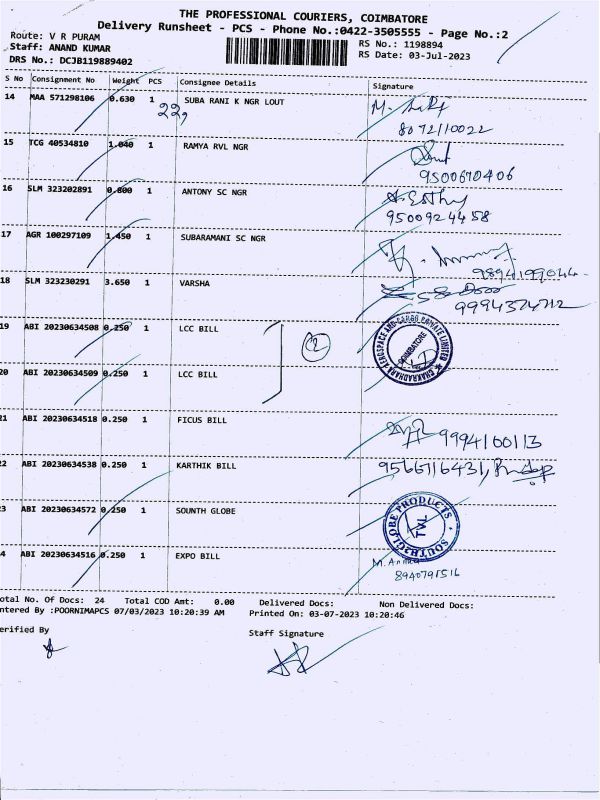 THE PROFESSIONAL COURIERS, COIMBATORE
Delivery Runsheet - PCS - Phone No.:0422-3505555 - Page No.:2
Route: V R PURAM
RS No.: 1198894
Staff: ANAND KUMAR
RS Date: 03-Jul-2023
DRS No.: DCJB119889402
S No Consignment No Weight PCS Consignee Details Signature
14 MAA 571298106 0.630 1 SUBA RANI K NGR LOUT
8072110022
15 TCG 40534810 1.040 1 RAMYA RVL NGR
9500670406
16 SLM 323202891 0.800 1 ANTONY SC NGR
9500924458
17 AGR 100297109 1.450 1 SUBARAMANI SC NGR
9894199044
18 SLM 323230291 3.650 1 VARSHA
9994374712
19 ABI 20230634508 0.250 1 LCC BILL
2
CHAKRADHARA AEROSPACE AND CARGO PRIVATE LIMITED
COIMBATORE
20 ABI 20230634509 0.250 1 LCC BILL
21 ABI 20230634518 0.250 1 FICUS BILL
9994100113
22 ABI 20230634538 0.250 1 KARTHIK BILL
9566716431,
23 ABI 20230634572 0.250 1 SOUNTH GLOBE
SOUTH GLOBE PRODUCTS
TVL
24 ABI 20230634516 0.250 1 EXPO BILL
8940791516
otal No. Of Docs: 24 Total COD Amt: 0.00 Delivered Docs: Non Delivered Docs:
ntered By :POORNIMAPCS 07/03/2023 10:20:39 AM Printed On: 03-07-2023 10:20:46
erified By
Staff Signature